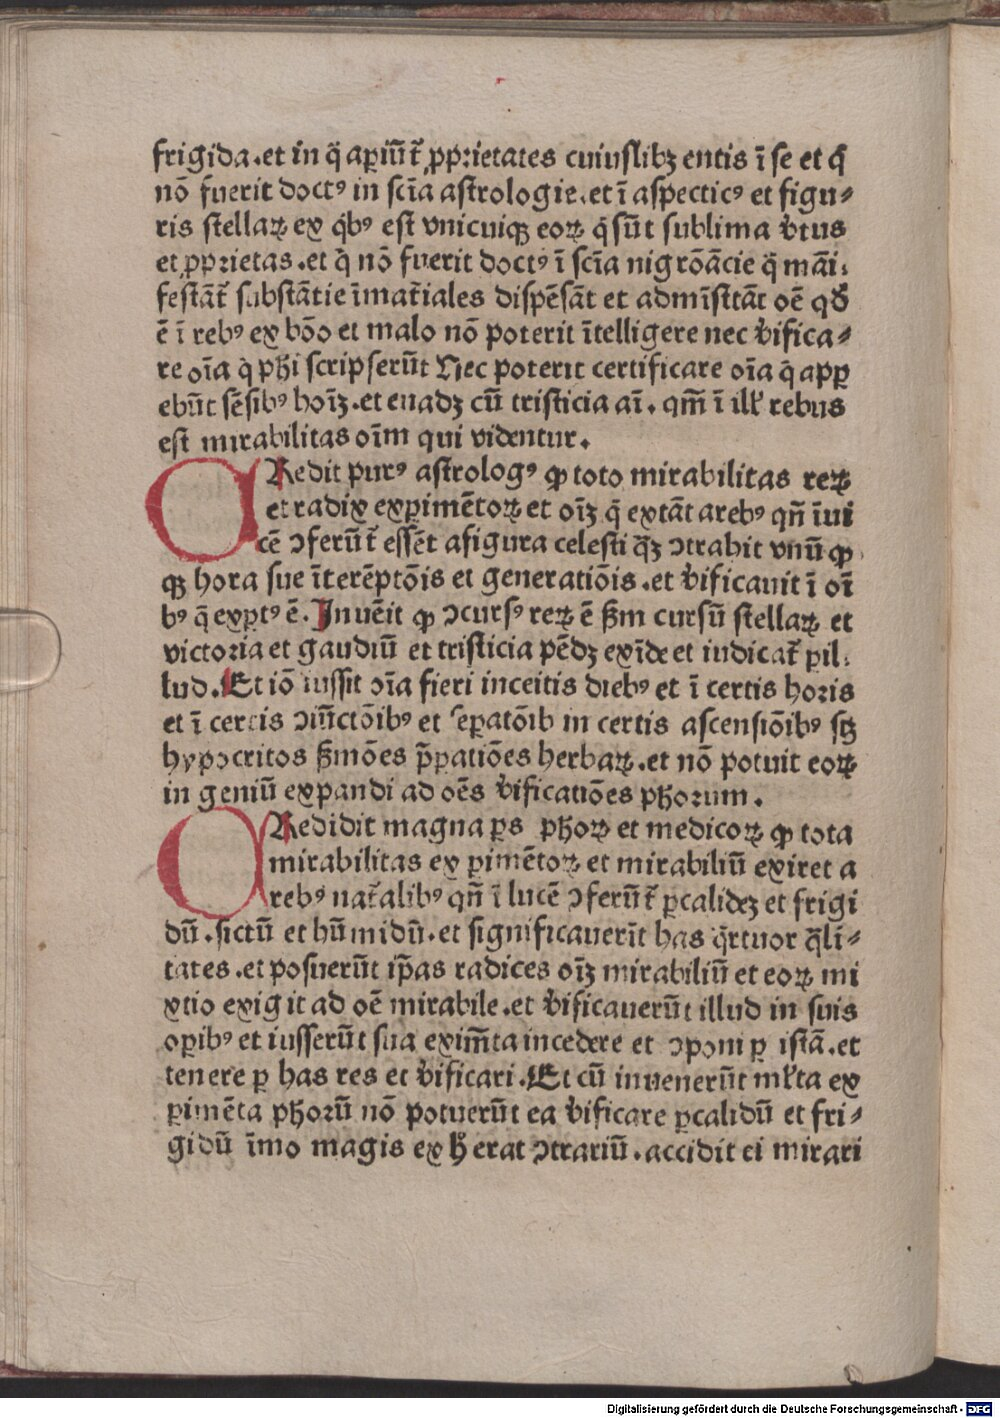 frigida.et in q̄ aꝑiūt̄ ꝓprietates cuiuslibꝫ entis ī se et q̄
nō fuerit doctꝰ in scīa astrologie.et ī aspecticꝰ et figu⸗
ris stellaꝝ ex q̄bꝰ est vnicuiqꝫ eoꝝ q̄ sūt sublima v̄tus
et ꝓprietas.et q̄ nō fuerit doctꝰ ī scīa nigrōācie q̄ māi⸗
festāt̄ substātie īmat̄iales dispēsāt et admīstrāt oē qđ
ē ī rebꝰ ex bōo et malo nō poterit ītelligere nec v̄ifica⸗
re oīa q̄ phi scripserūt Nec poterit certificare oīa q̄ apꝑ
ebūt sēsibꝰ hoīꝫ.et euadꝫ cū tristicia aī.qm̄ ī ill̄ rebus
est mirabilitas oīm qui videntur.
CRedit purꝰ astrologꝰ ꝙ toto mirabilitas reꝝ
et radix exꝑimētoꝝ et oīꝫ q̄ extāt arebꝰ qn̄ īui
cē ꝯferūt̄ essēt afigura celesti q̄ꝫ ꝯtrahit vnū ꝙ
qꝫ hora sue īterēptōis et generatiōis.et v̄ificauit ī oī
bꝰ q̄ exꝑtꝰ ē.Inuēit ꝙ ꝯcursꝰ reꝝ ē ẜm cursū stellaꝝ et
victoria et gaudiū et tristicia pēdꝫ exīde et iudicat̄ ꝑil⸗
lud.Et iō iussit oīa fieri inceitis diebꝰ et ī certis horis
et ī certis ꝯiūctōibꝰ et seꝑatōib in certis ascensiōibꝰ sꝫ
hypocritos ẜmōes p̄ꝑatiōes herbaꝝ.et nō potuit eoꝝ
in geniū expandi ad oēs v̄ificatiōes phorum.
CRedidit magna ꝑs phoꝝ et medicoꝝ ꝙ tota
mirabilitas ex ꝑimētoꝝ et mirabiliū exiret a
rebꝰ nat̄alibꝰ qn̄ ī lucē ꝯferūt̄ ꝑcalidꝫ et frigi
dū.sictū et hūmidū.et significauerīt has q̄rtuor q̄li⸗
tates.et posuerūt ip̄as radices oīꝫ mirabiliū et eoꝝ mi
xtio exigit ad oē mirabile.et v̄ificauerūt illud in suis
oꝑibꝰ et iusserūt sua exim̄ta incedere et ꝯponi ꝑ istā.et
tenere ꝑ has res et v̄ificari.Et cū inuenerūt ml̄ta ex
ꝑimēta phorū nō potuerūt ea v̄ificare ꝑcalidū et fri⸗
gidū īmo magis ex ħ erat ꝯtrariū.accidit ei mirari
Digitalisierung gefördert durch die Deutsche Forschungsgemeinschaft - DFG